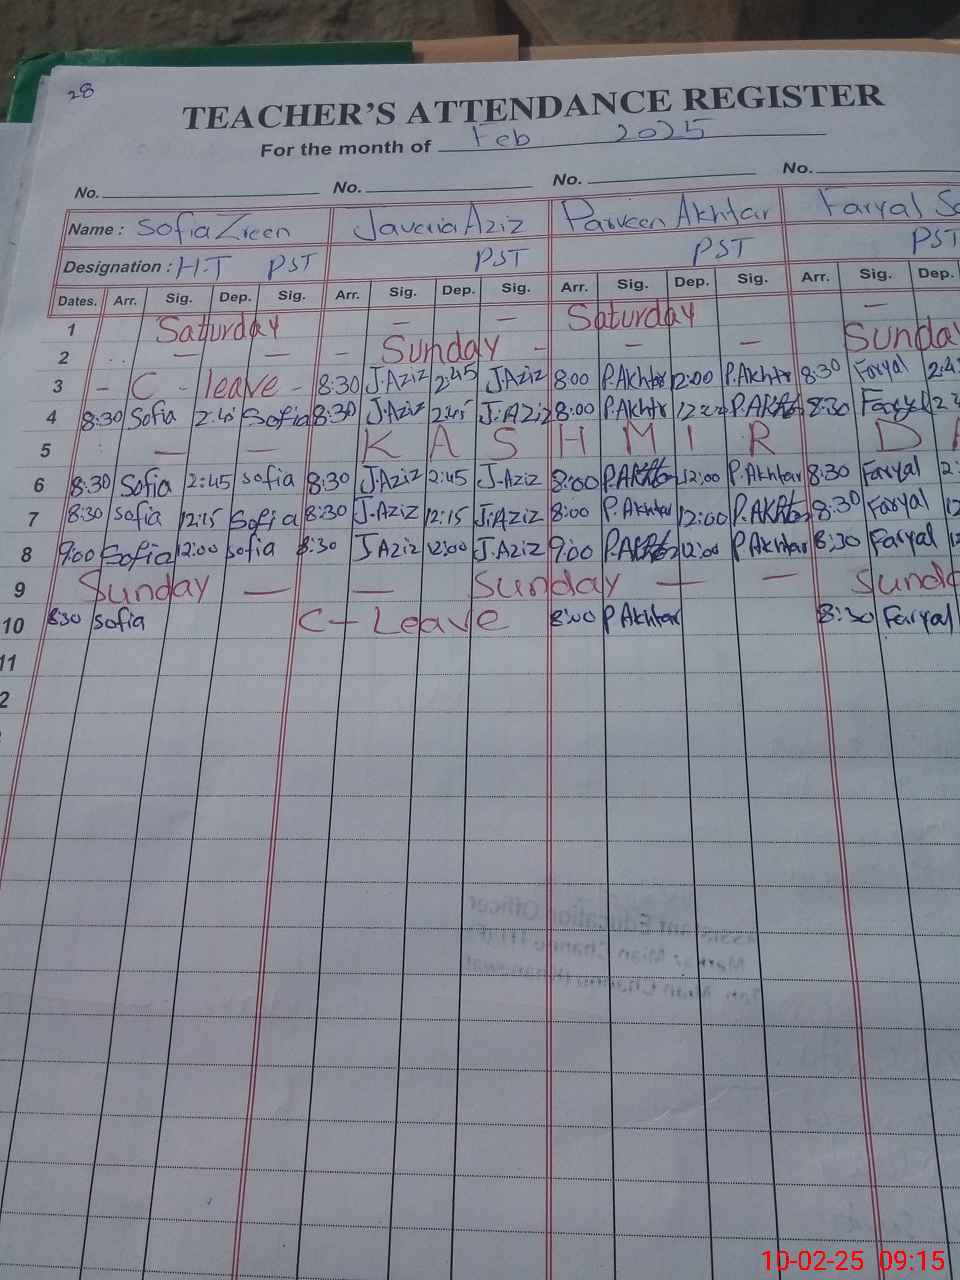 28
TEACHER'S ATTENDANCE REGISTER
For the month of Feb 2025
No. No. No. No.
Name : Sofia Zreen Javeria Aziz Parveen Akhtar Faryal
Designation : H.T PST PST PST PST
Dates. Arr. Sig. Dep. Sig. Arr. Sig. Dep. Sig. Arr. Sig. Dep. Sig. Arr. Sig. Dep.
1 Saturday — — Saturday —
2 — — - Sunday - — — Sunda
3 - C - leave - 8:30 J.Aziz 2:45 J.Aziz 8:00 P.Akhtr 12:00 P.Akhtr 8:30 Faryal 2:4
4 8:30 Sofia 2:45 Sofia 8:30 J.Aziz 2:45 J.Aziz 8:00 P.Akhtr 12:00 P.Akhtar 8:30 Faryal
5 — — K A S H M I R D
6 8:30 Sofia 2:45 Sofia 8:30 J.Aziz 2:45 J.Aziz 8:00 P.Akhtar 12:00 P.Akhtar 8:30 Faryal 2:
7 8:30 Sofia 12:15 Sofia 8:30 J.Aziz 12:15 J.Aziz 8:00 P.Akhtar 12:00 P.Akhtar 8:30 Faryal 12
8 9:00 Sofia 12:00 Sofia 8:30 J.Aziz 12:00 J.Aziz 9:00 P.Akhtar 12:00 P Akhtar 8:30 Faryal
9 Sunday — — Sunday — — Sunda
10 8:30 Sofia C - Leave 8:00 P Akhtar 8:30 Faryal
11
2
10-02-25 09:15